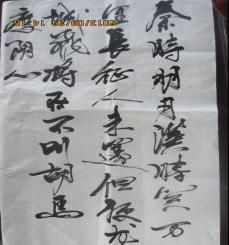 秦時明月漢時関万
里長征人未還但使龙
城飛将在不叫胡馬
度阴山